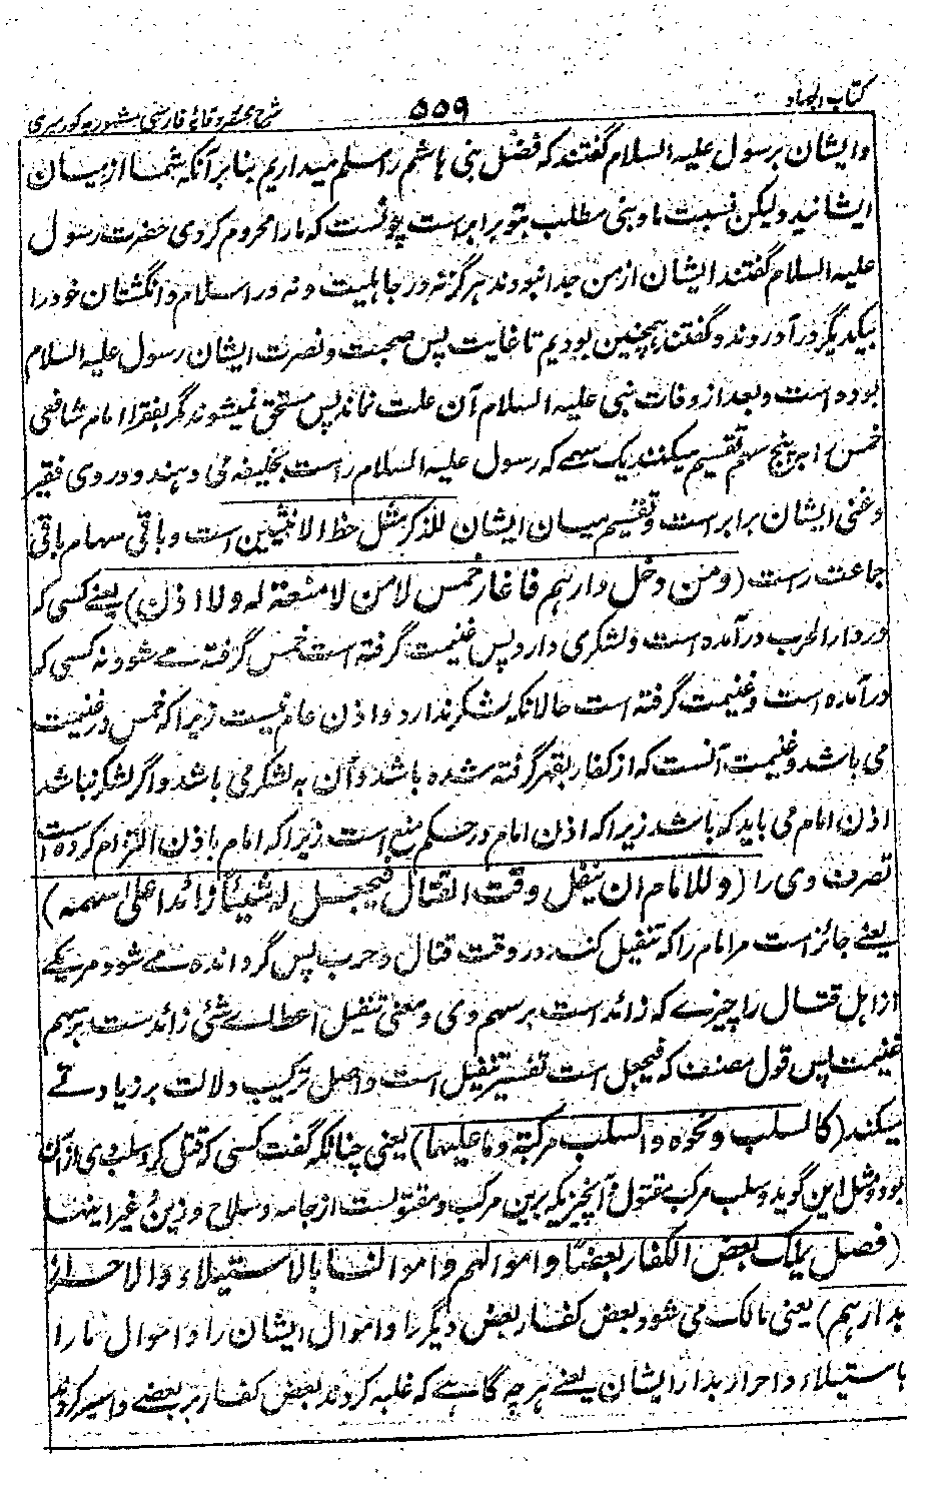 کتاب الجهاد
۵۵۹
شرح مختصر وقایهٔ فارسی مشهور به کورسری
وایشان بر رسول علیه السلام گفتند که فضل بنی هاشم را مسلم میداریم بنا بر آنکه شما از میان
ایشانید ولیکن نسبت ما و بنی مطلب بتو برابر است چونست که ما را محروم کردی حضرت رسول
علیه السلام گفتند ایشان از من جدا نبودند هرگز نه در جاهلیت و نه در اسلام و انگشتان خود را
بیکدیگر در آوردند و گفتند همچنین بودیم تا غایت پس صحبت و نصرت ایشان رسول علیه السلام
بوده است و بعد از وفات نبی علیه السلام آن علت نماند پس مستحق نمیشوند مگر بفقر اما امام شافعی
خمس را بر پنج سهم تقسیم میکنند یک سهمی که رسول علیه السلام راست بخلیفه می دهند و در وی فقیر
و غنی ایشان برابر است و تقسیم میان ایشان للذکر مثل حظ الانثیین است و باقی سهام باقی
جماعت راست (ومن دخل دارهم فاغار خمس لا من لا منعة له ولا اذن) یعنے کسی که
در دار الحرب در آمده است و لشکری دارد پس غنیمت گرفته است خمس گرفته مے شود نه کسی که
در آمده است و غنیمت گرفته است حالانکه لشکر ندارد و اذن عام نیست زیرا که خمس در غنیمت
می باشد و غنیمت آنست که از کفار بقهر گرفته شده باشد و آن به لشکر می باشد و اگر لشکر نباشد
اذن امام می باید که باشد زیرا که اذن امام در حکم منع است زیرا که امام باذن التزام کرده است
تصرف وی را (وللامام ان ینفل وقت القتال فیجعل له شیئًا زائدا علی سهمه)
یعنے جائز است مر امام را که تنفیل کند در وقت قتال و حرب پس گردانده مے شود مر یکے
از اهل قتال را چیزے که زائد است بر سهم وی و معنی تنفیل اعطاے شئ زائدست بر سهم
غنیمت پس قول مصنف که فیجعل است تفسیر تنفیل است و اصل ترکیب دلالت بر زیادتے
میکند (کالسلب ونحوه والسلب مرکبه وما علیهما) یعنی چنانکه گفت کسی که قتل کرد سلب وی از آن
بود و مثل این گوید و سلب مرکب مقتول و آنچیزیکه برین مرکب و مقتولست از جامه و سلاح و زین و غیر اینها
(فصل یملک بعض الکفار بعضًا واموالهم واموالنا بالاستیلاء والاحراز
بدارهم) یعنی مالک می شود بعض کفار بعض دیگر را و اموال ایشان را و اموال ما را
باستیلاء و احراز بدار ایشان یعنے هر چه گاهے که غلبه کردند بعض کفار بر بعضے و اسیر کردند